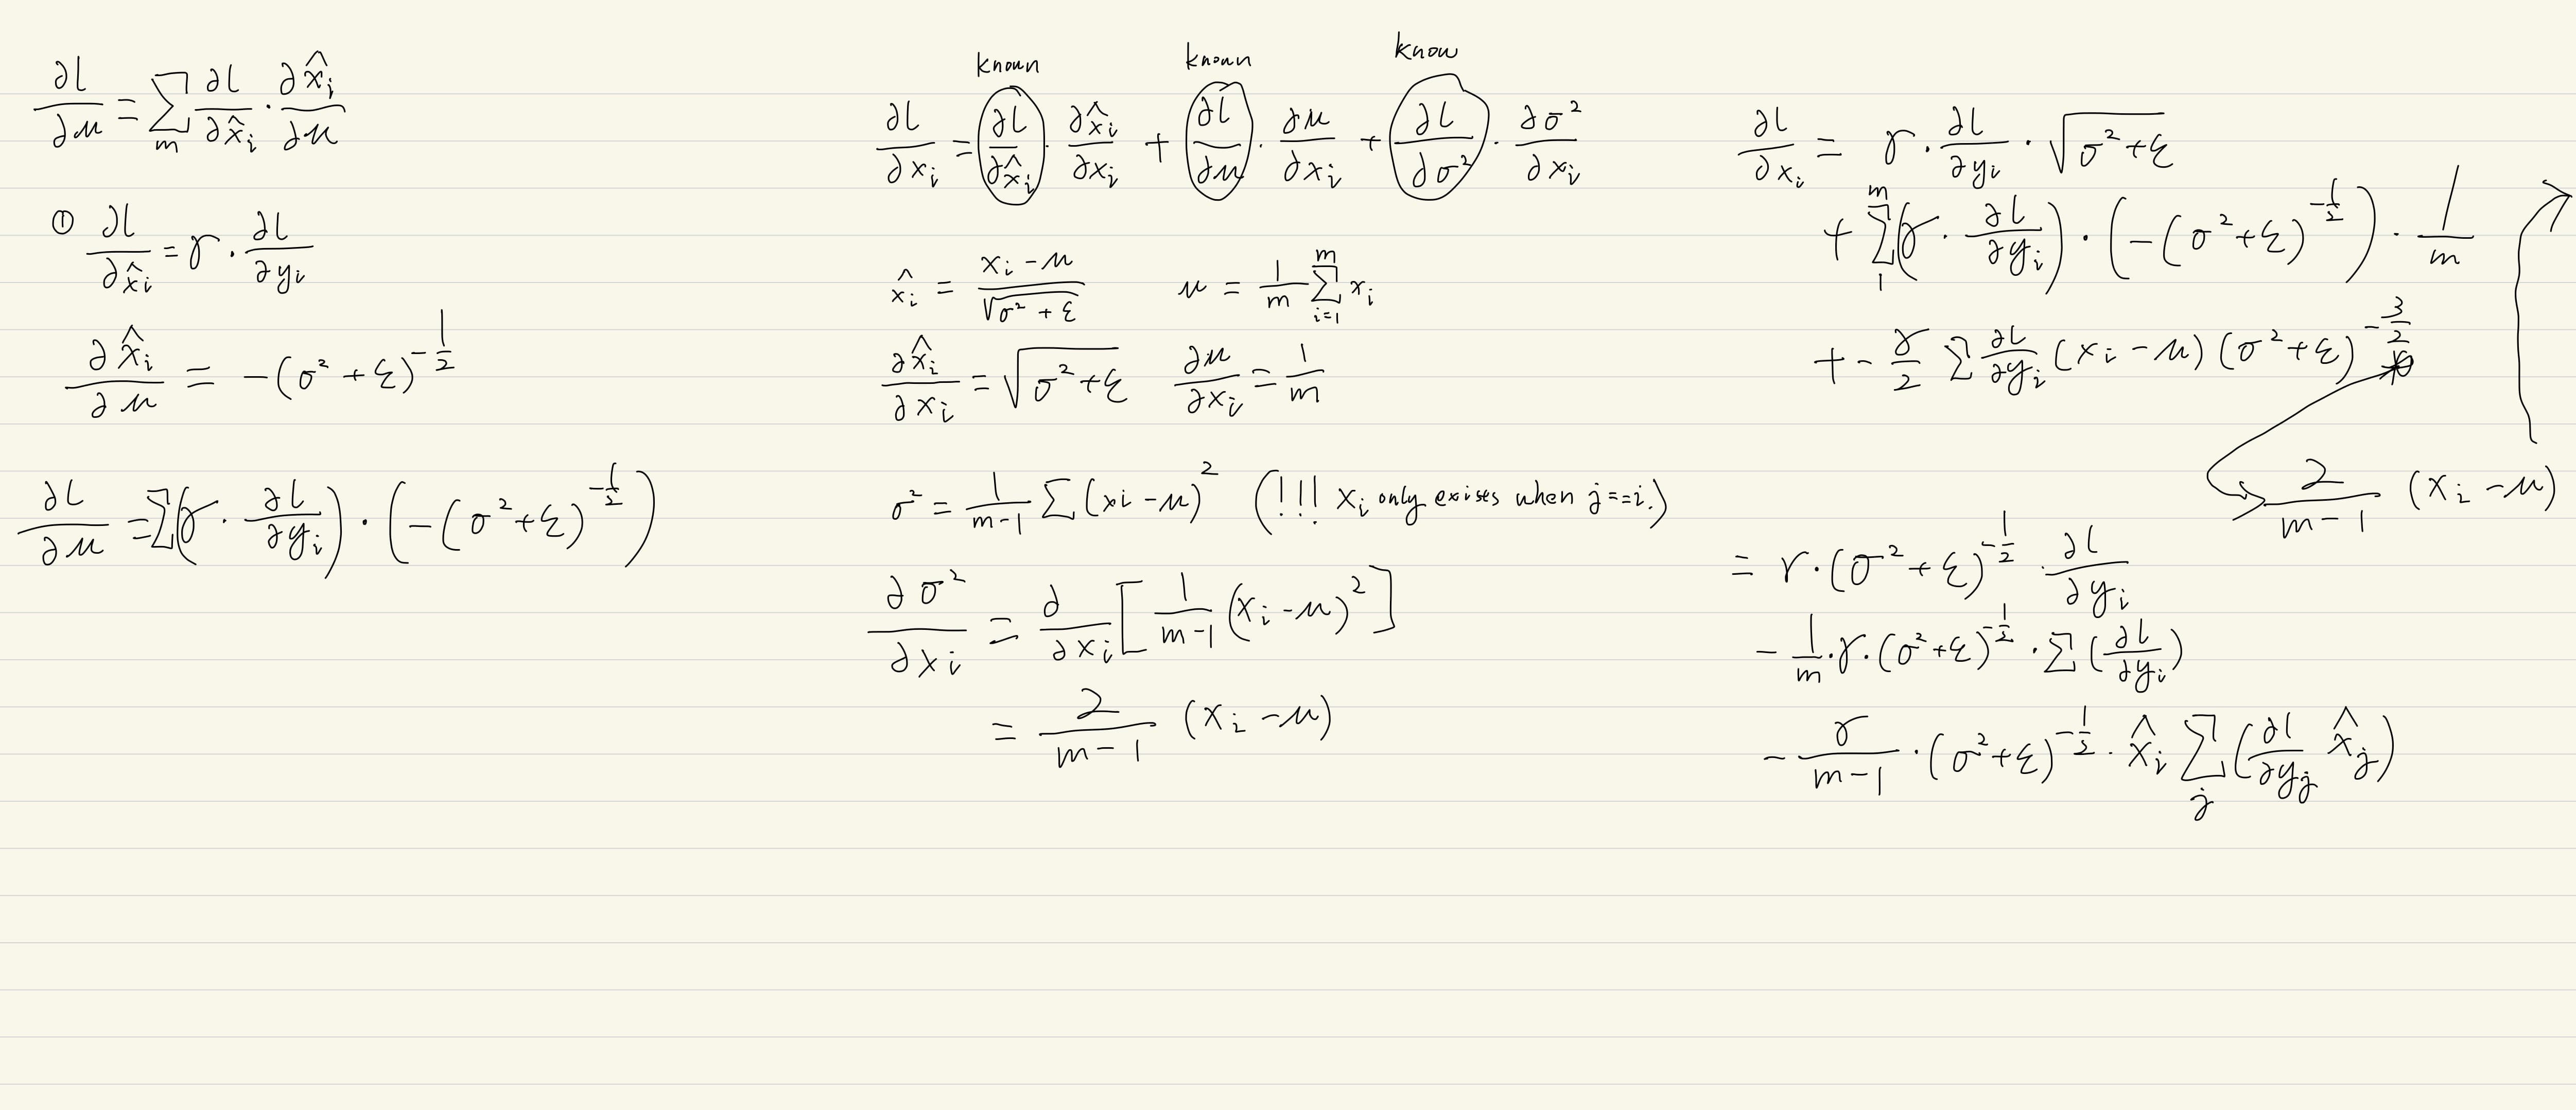 ∂l/∂μ = Σ_m ∂l/∂x̂_i · ∂x̂_i/∂μ
① ∂l/∂x̂_i = γ · ∂l/∂y_i
∂x̂_i/∂μ = -(σ² + ε)^(-1/2)
∂l/∂μ = Σ(γ · ∂l/∂y_i) · (-(σ²+ε)^(-1/2))
known known know
∂l/∂x_i = ∂l/∂x̂_i · ∂x̂_i/∂x_i + ∂l/∂μ · ∂μ/∂x_i + ∂l/∂σ² · ∂σ²/∂x_i
x̂_i = (x_i - μ)/√(σ² + ε) μ = 1/m Σ_{i=1}^{m} x_i
∂x̂_i/∂x_i = √(σ² + ε) ∂μ/∂x_i = 1/m
σ² = 1/(m-1) Σ(xi - μ)² (!!! x_i only exises when j==i.)
∂σ²/∂x_i = ∂/∂x_i [1/(m-1) (x_i - μ)²]
= 2/(m-1) (x_i - μ)
∂l/∂x_i = γ · ∂l/∂y_i · √(σ²+ε)
+ Σ_1^m (γ · ∂l/∂y_i) · (-(σ²+ε)^(-1/2)) · 1/m
+ - γ/2 Σ ∂l/∂y_i (x_i - μ) (σ²+ε)^(-3/2)
2/(m-1) (x_i - μ)
= γ · (σ² + ε)^(-1/2) · ∂l/∂y_i
- 1/m · γ · (σ²+ε)^(-1/2) · Σ (∂l/∂y_i)
- γ/(m-1) · (σ²+ε)^(-1/2) · x̂_i Σ_j (∂l/∂y_j x̂_j)